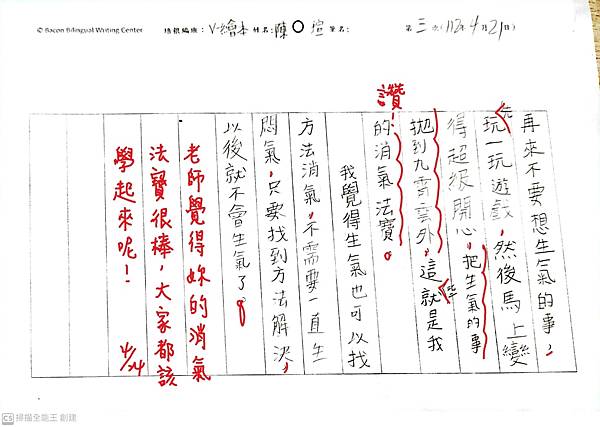 © Bacon Bilingual Writing Center 班級編班：V-繪本 姓名：陳〇瑄 筆名： 第三次(112年4月21日)
再來不要想生氣的事，
先玩一玩遊戲，然後馬上變
得超級開心，把生氣的事
拋到九霄雲外，這就是我
的消氣法寶。
讚！
我覺得生氣也可以找
方法消氣，不需要一直生
悶氣，只要找到方法解決，
以後就不會生氣了。
老師覺得妳的消氣
法寶很棒，大家都該
學起來呢！
4/24
CS 掃描全能王 創建